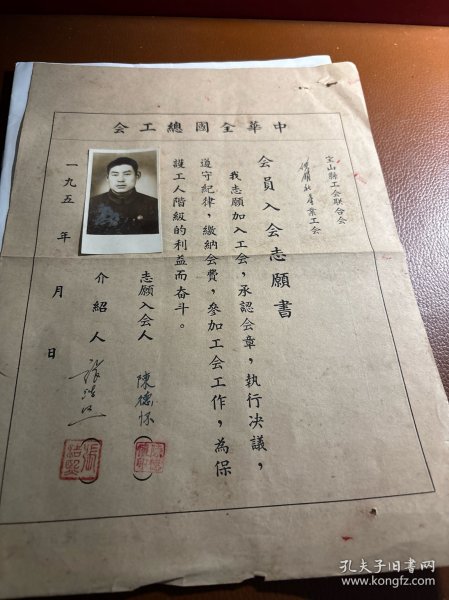 中華全國總工会
宝山縣工会联合会
産業工会
会員入会志願書
我志願加入工会，承認会章，執行决議，
遵守紀律，繳納会費，参加工会工作，為保
護工人階級的利益而奋斗。
志願入会人 陳德怀
介紹人
一九五 年 月 日
孔夫子旧书网
www.kongfz.com